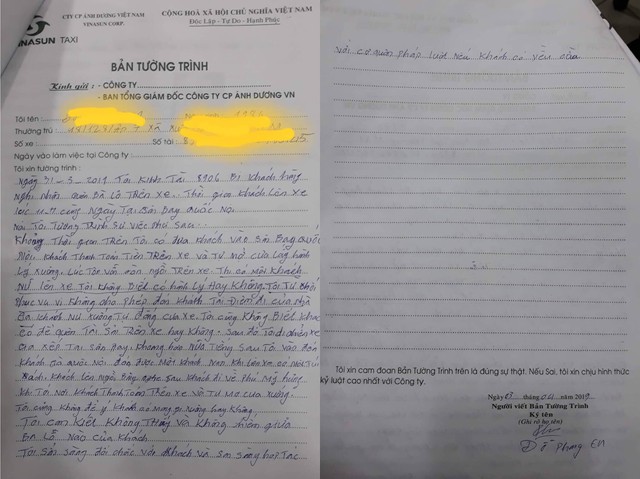 CTY CP ÁNH DƯƠNG VIỆT NAM
VINASUN CORP.
VINASUN TAXI
CỘNG HOÀ XÃ HỘI CHỦ NGHĨA VIỆT NAM
Độc Lập - Tự Do - Hạnh Phúc
BẢN TƯỜNG TRÌNH
Kính gửi : - CÔNG TY
- BAN TỔNG GIÁM ĐỐC CÔNG TY CP ÁNH DƯƠNG VN
Tôi tên :
Thường trú :
Số xe : Số tài :
Ngày vào làm việc tại Công ty :
Tôi xin tường trình :
Ngày 31-3-2019 Tôi Tài 8906 Bị Khách hàng
Nghi Nhân quên Đồ Trên xe. Thời gian Khách Lên xe
lúc cùng Ngày Tại Sân Bay Quốc Nội
Nay Tôi Tường Trình Sự việc Như Sau
Khoảng Thời gian Trên Tôi có đưa khách vào Sân Bay Quốc
Nội. Khách Thanh Toán Tiền Trên xe Và Tự mở cửa Lấy hành
Lý Xuống. Lúc Tôi vẫn còn ngồi Trên xe. Thì có một Khách
NỮ lên xe Tôi Không Biết có hành Lý Hay Không. Tôi Từ chối
Phục vụ vì Không cho phép đón khách Tại Điểm đi của nhà
ga Khách NỮ xuống Tự đóng cửa xe. Tôi cũng Không Biết Khách
Có để quên Tài Sản Trên xe hay Không. Sau đó Tôi di chuyển xe
Tài Sân Bay. Khoảng hơn Nửa Tiếng Sau Tôi vào đón
Khách Ga quốc Nội đón được Một Khách Nam Khi Lên xe có
Khách Lên ngồi Sau khi đi về Phú Mỹ hưng
Khi Tới Nơi Khách Thanh Toán Trên xe Và Tự Mở cửa xuống.
Tôi cũng Không để ý Khách có mang gì Xuống hay Không.
Tôi cam Kết Không Thấy Và Không chiếm giữ
Ba Lô Nào của Khách
Tôi Sẵn Sàng đối chất Với Khách Và Sẵn sàng hợp Tác
với cơ quan pháp luật nếu Khách có yêu cầu
Tôi xin cam đoan Bản Tường Trình trên là đúng sự thật. Nếu Sai, tôi xin chịu hình thức
kỷ luật cao nhất với Công ty.
Ngày 03 tháng 04 năm 2019
Người viết Bản Tường Trình
Ký tên
(Ghi rõ họ tên)